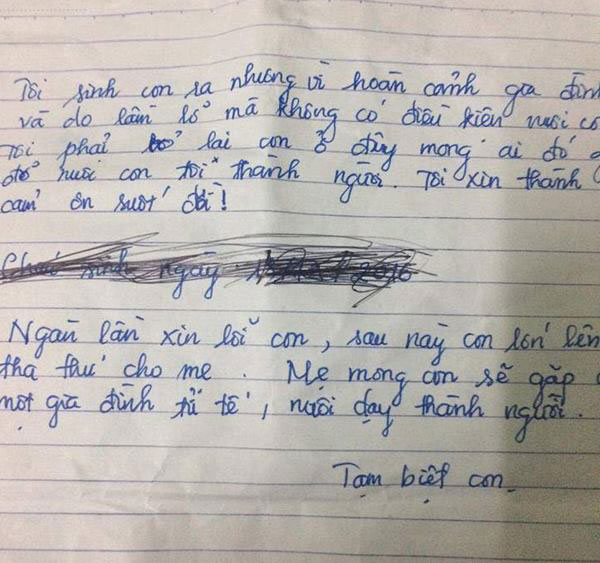 Tôi sinh con ra nhưng vì hoàn cảnh gia đình
và do lầm lỡ mà không có điều kiện nuôi co
Tôi phải bỏ lại con ở đây mong ai đó
đỡ nuôi con tôi thành người. Tôi xin thành
cảm ơn suốt đời!
Cháu sinh ngày 2016
Ngàn lần xin lỗi con, sau này con lớn lên
tha thứ cho mẹ. Mẹ mong con sẽ gặp
một gia đình tử tế, nuôi dạy thành người.
Tạm biệt con.